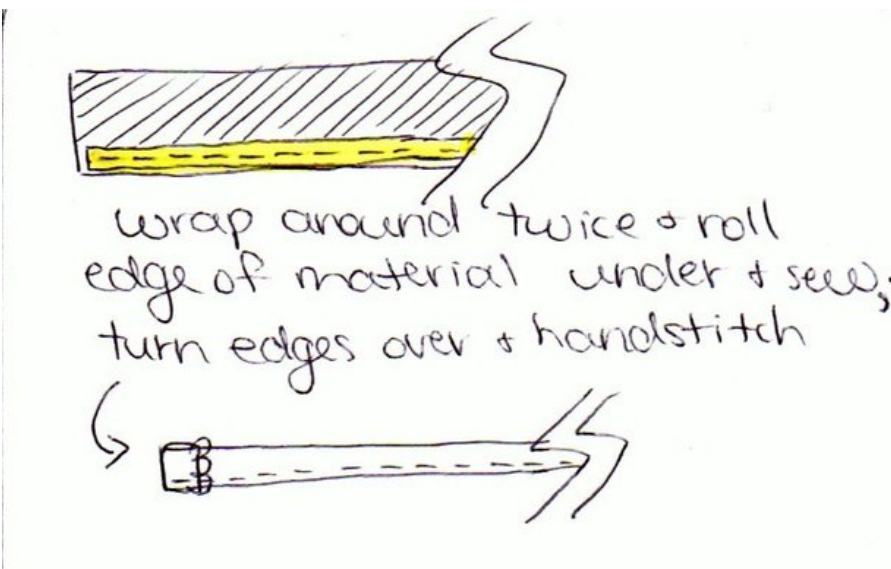 wrap around twice & roll
edge of material under & sew;
turn edges over & handstitch